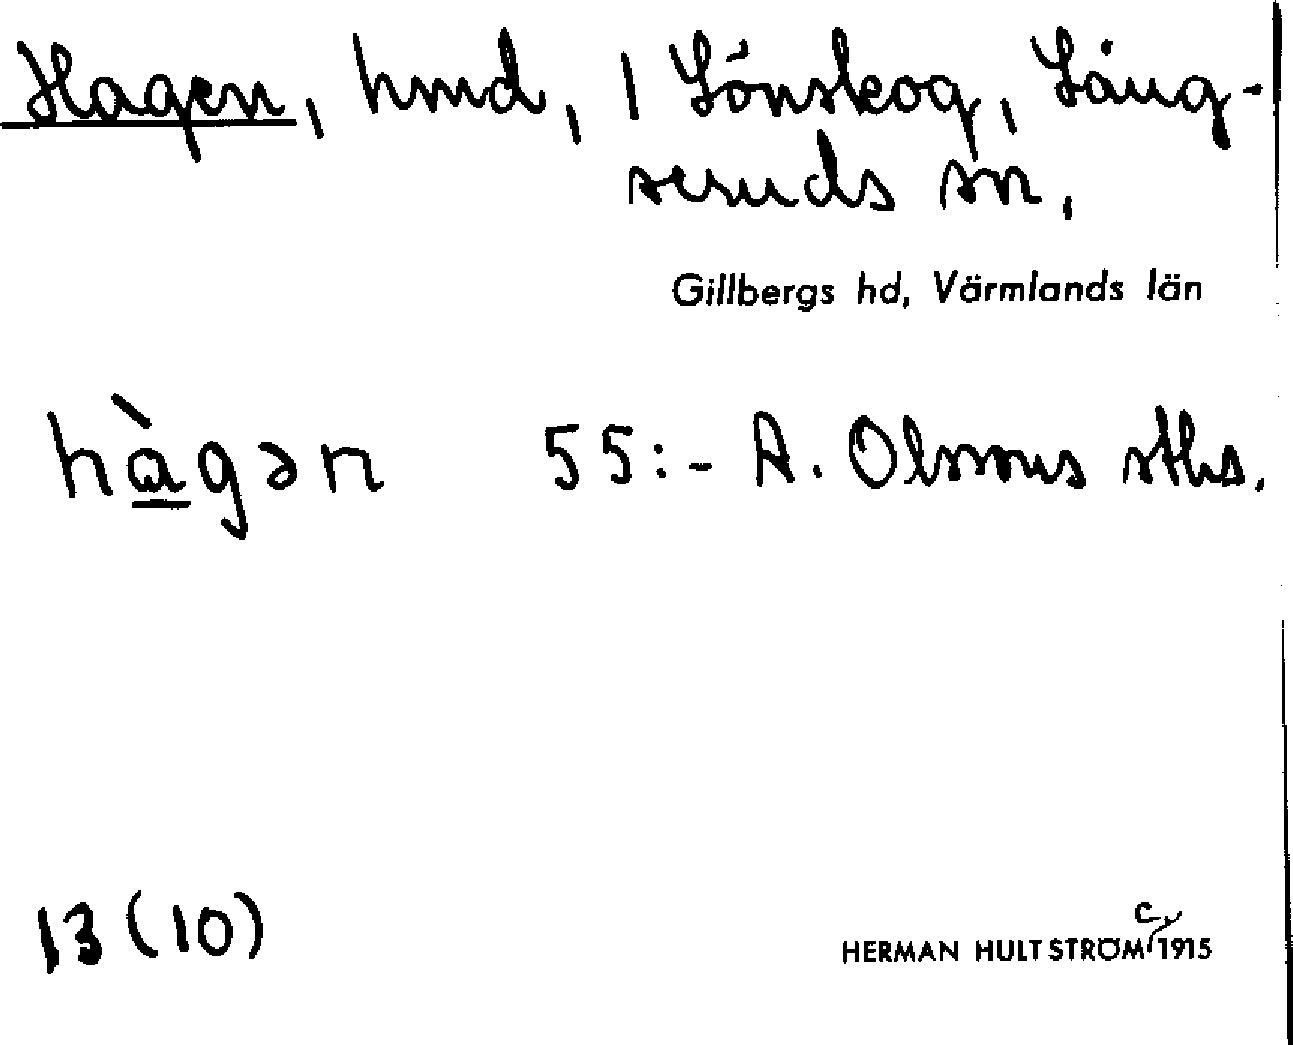 Hagen, hmd, 1 Lönskog, Lång-
seruds sn.
Gillbergs hd, Värmlands län
hàgən 55:- A. Olssons sths.
13 (10)
HERMAN HULTSTRÖM C 1915